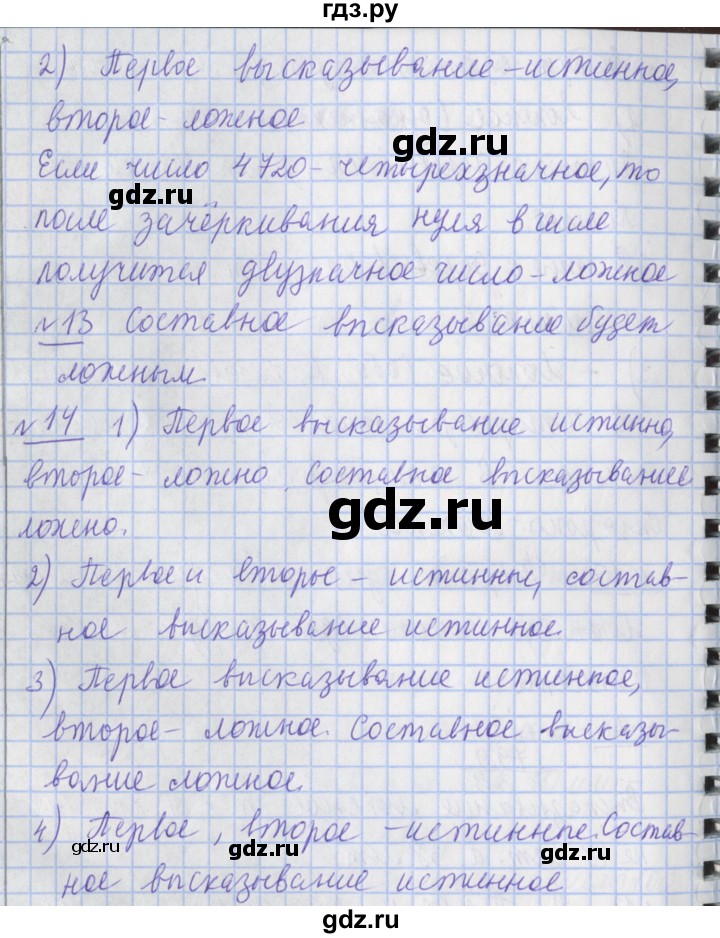 гдз.ру
2) Первое высказывание - истинное,
второе - ложное
gdz.ru
Если число 4720 - четырехзначное, то
gdz.ru
после зачёркивания нуля в числе
получится двузначное число - ложное
№13 Составное высказывание будет
ложным.
№14 1) Первое высказывание истинно,
второе - ложно. Составное высказывание
ложно.
gdz.ru
2) Первое и второе - истинны, состав-
ное высказывание истинное.
3) Первое высказывание истинное,
второе - ложное. Составное высказы-
вание ложное.
4) Первое, второе - истинные. Состав-
gdz.ru gdz.ru gdz.ru
ное высказывание истинное
gdz.ru